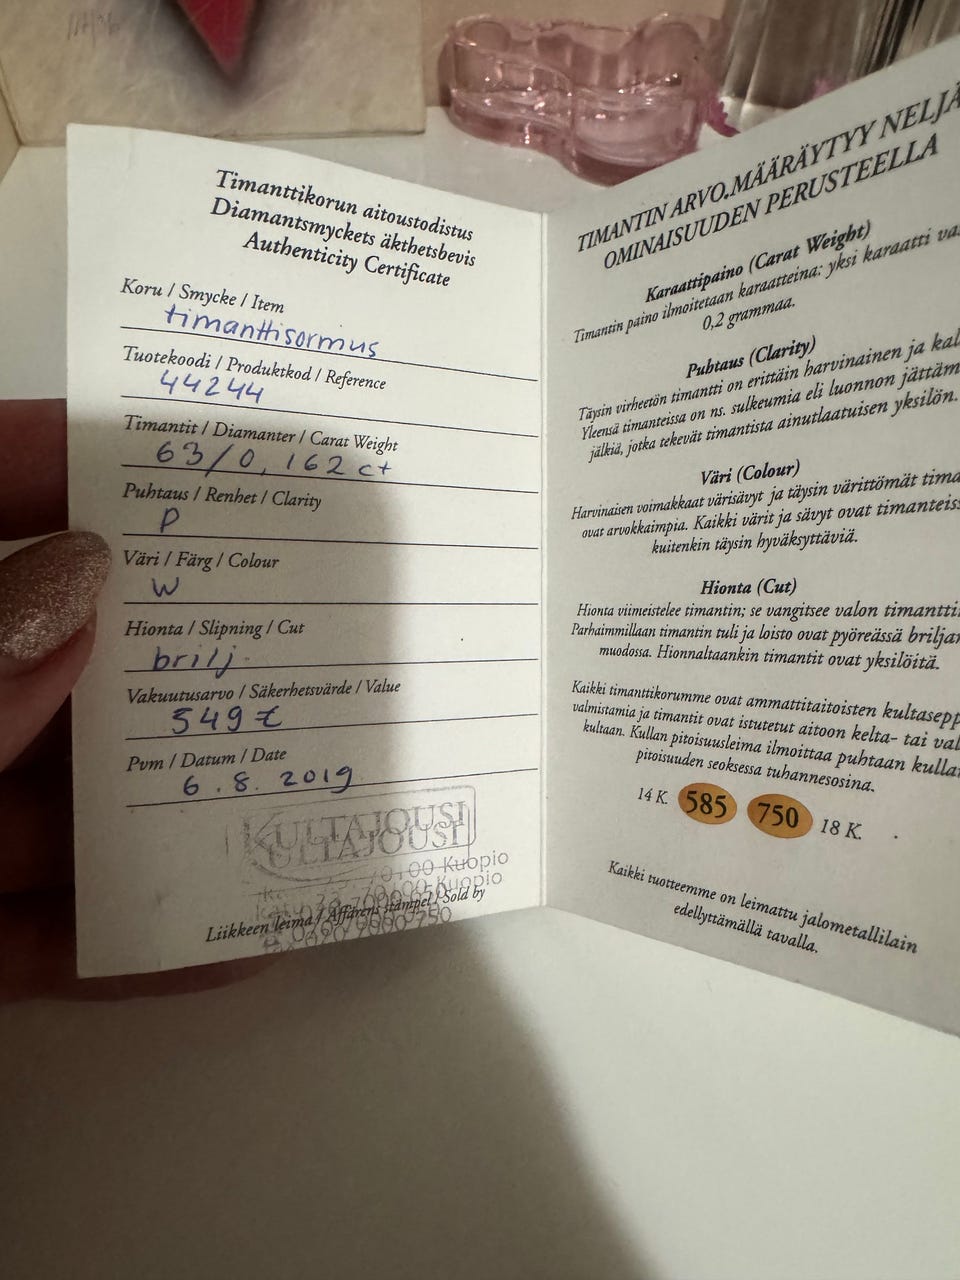 Timanttikorun aitoustodistus
Diamantsmyckets äkthetsbevis
Authenticity Certificate
Koru / Smycke / Item
timanttisormus
Tuotekoodi / Produktkod / Reference
44244
Timantit / Diamanter / Carat Weight
63/0,162 ct
Puhtaus / Renhet / Clarity
P
Väri / Färg / Colour
W
Hionta / Slipning / Cut
brilj.
Vakuutusarvo / Säkerhetsvärde / Value
549 €
Pvm / Datum / Date
6.8.2019
KULTAJOUSI
ULTAJOUSI
70100 Kuopio
Kuopio
Liikkeen leima / Affärens stämpel / Sold by
TIMANTIN ARVO MÄÄRÄYTYY NELJÄ
OMINAISUUDEN PERUSTEELLA
Karaattipaino (Carat Weight)
Timantin paino ilmoitetaan karaatteina: yksi karaatti va
0,2 grammaa.
Puhtaus (Clarity)
Täysin virheetön timantti on erittäin harvinainen ja kal
Yleensä timanteissa on ns. sulkeumia eli luonnon jättäm
jälkiä, jotka tekevät timantista ainutlaatuisen yksilön.
Väri (Colour)
Harvinaisen voimakkaat värisävyt ja täysin värittömät tima
ovat arvokkaimpia. Kaikki värit ja sävyt ovat timanteis
kuitenkin täysin hyväksyttäviä.
Hionta (Cut)
Hionta viimeistelee timantin; se vangitsee valon timanttii
Parhaimmillaan timantin tuli ja loisto ovat pyöreässä briljan
muodossa. Hionnaltaankin timantit ovat yksilöitä.
Kaikki timanttikorumme ovat ammattitaitoisten kultasepp
valmistamia ja timantit ovat istutetut aitoon kelta- tai val
kultaan. Kullan pitoisuusleima ilmoittaa puhtaan kulla
pitoisuuden seoksessa tuhannesosina.
14 K. 585 750 18 K.
Kaikki tuotteemme on leimattu jalometallilain
edellyttämällä tavalla.